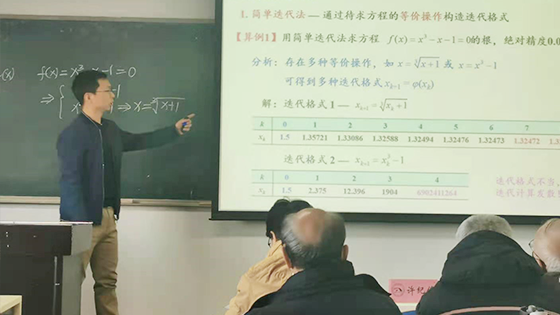 f(x)=x³-x-1=0
⇒
-1
⇒ x=∛x+1
1. 简单迭代法 — 通过待求方程的等价操作构造迭代格式
【算例1】用简单迭代法求方程 f(x)=x³-x-1=0的根，绝对精度0.0
分析：存在多种等价操作，如 x=∛x+1 或 x=x³-1
可得到多种迭代格式 xₖ₊₁=φ(xₖ)
解：迭代格式 1 — xₖ₊₁=∛xₖ+1
k 0 1 2 3 4 5 6 7
xₖ 1.5 1.35721 1.33086 1.32588 1.32494 1.32476 1.32473 1.32472 1.3
迭代格式 2 — xₖ₊₁=xₖ³-1
k 0 1 2 3 4
xₖ 1.5 2.375 12.396 1904 6902441264
迭代格式不当，
迭代计算发散